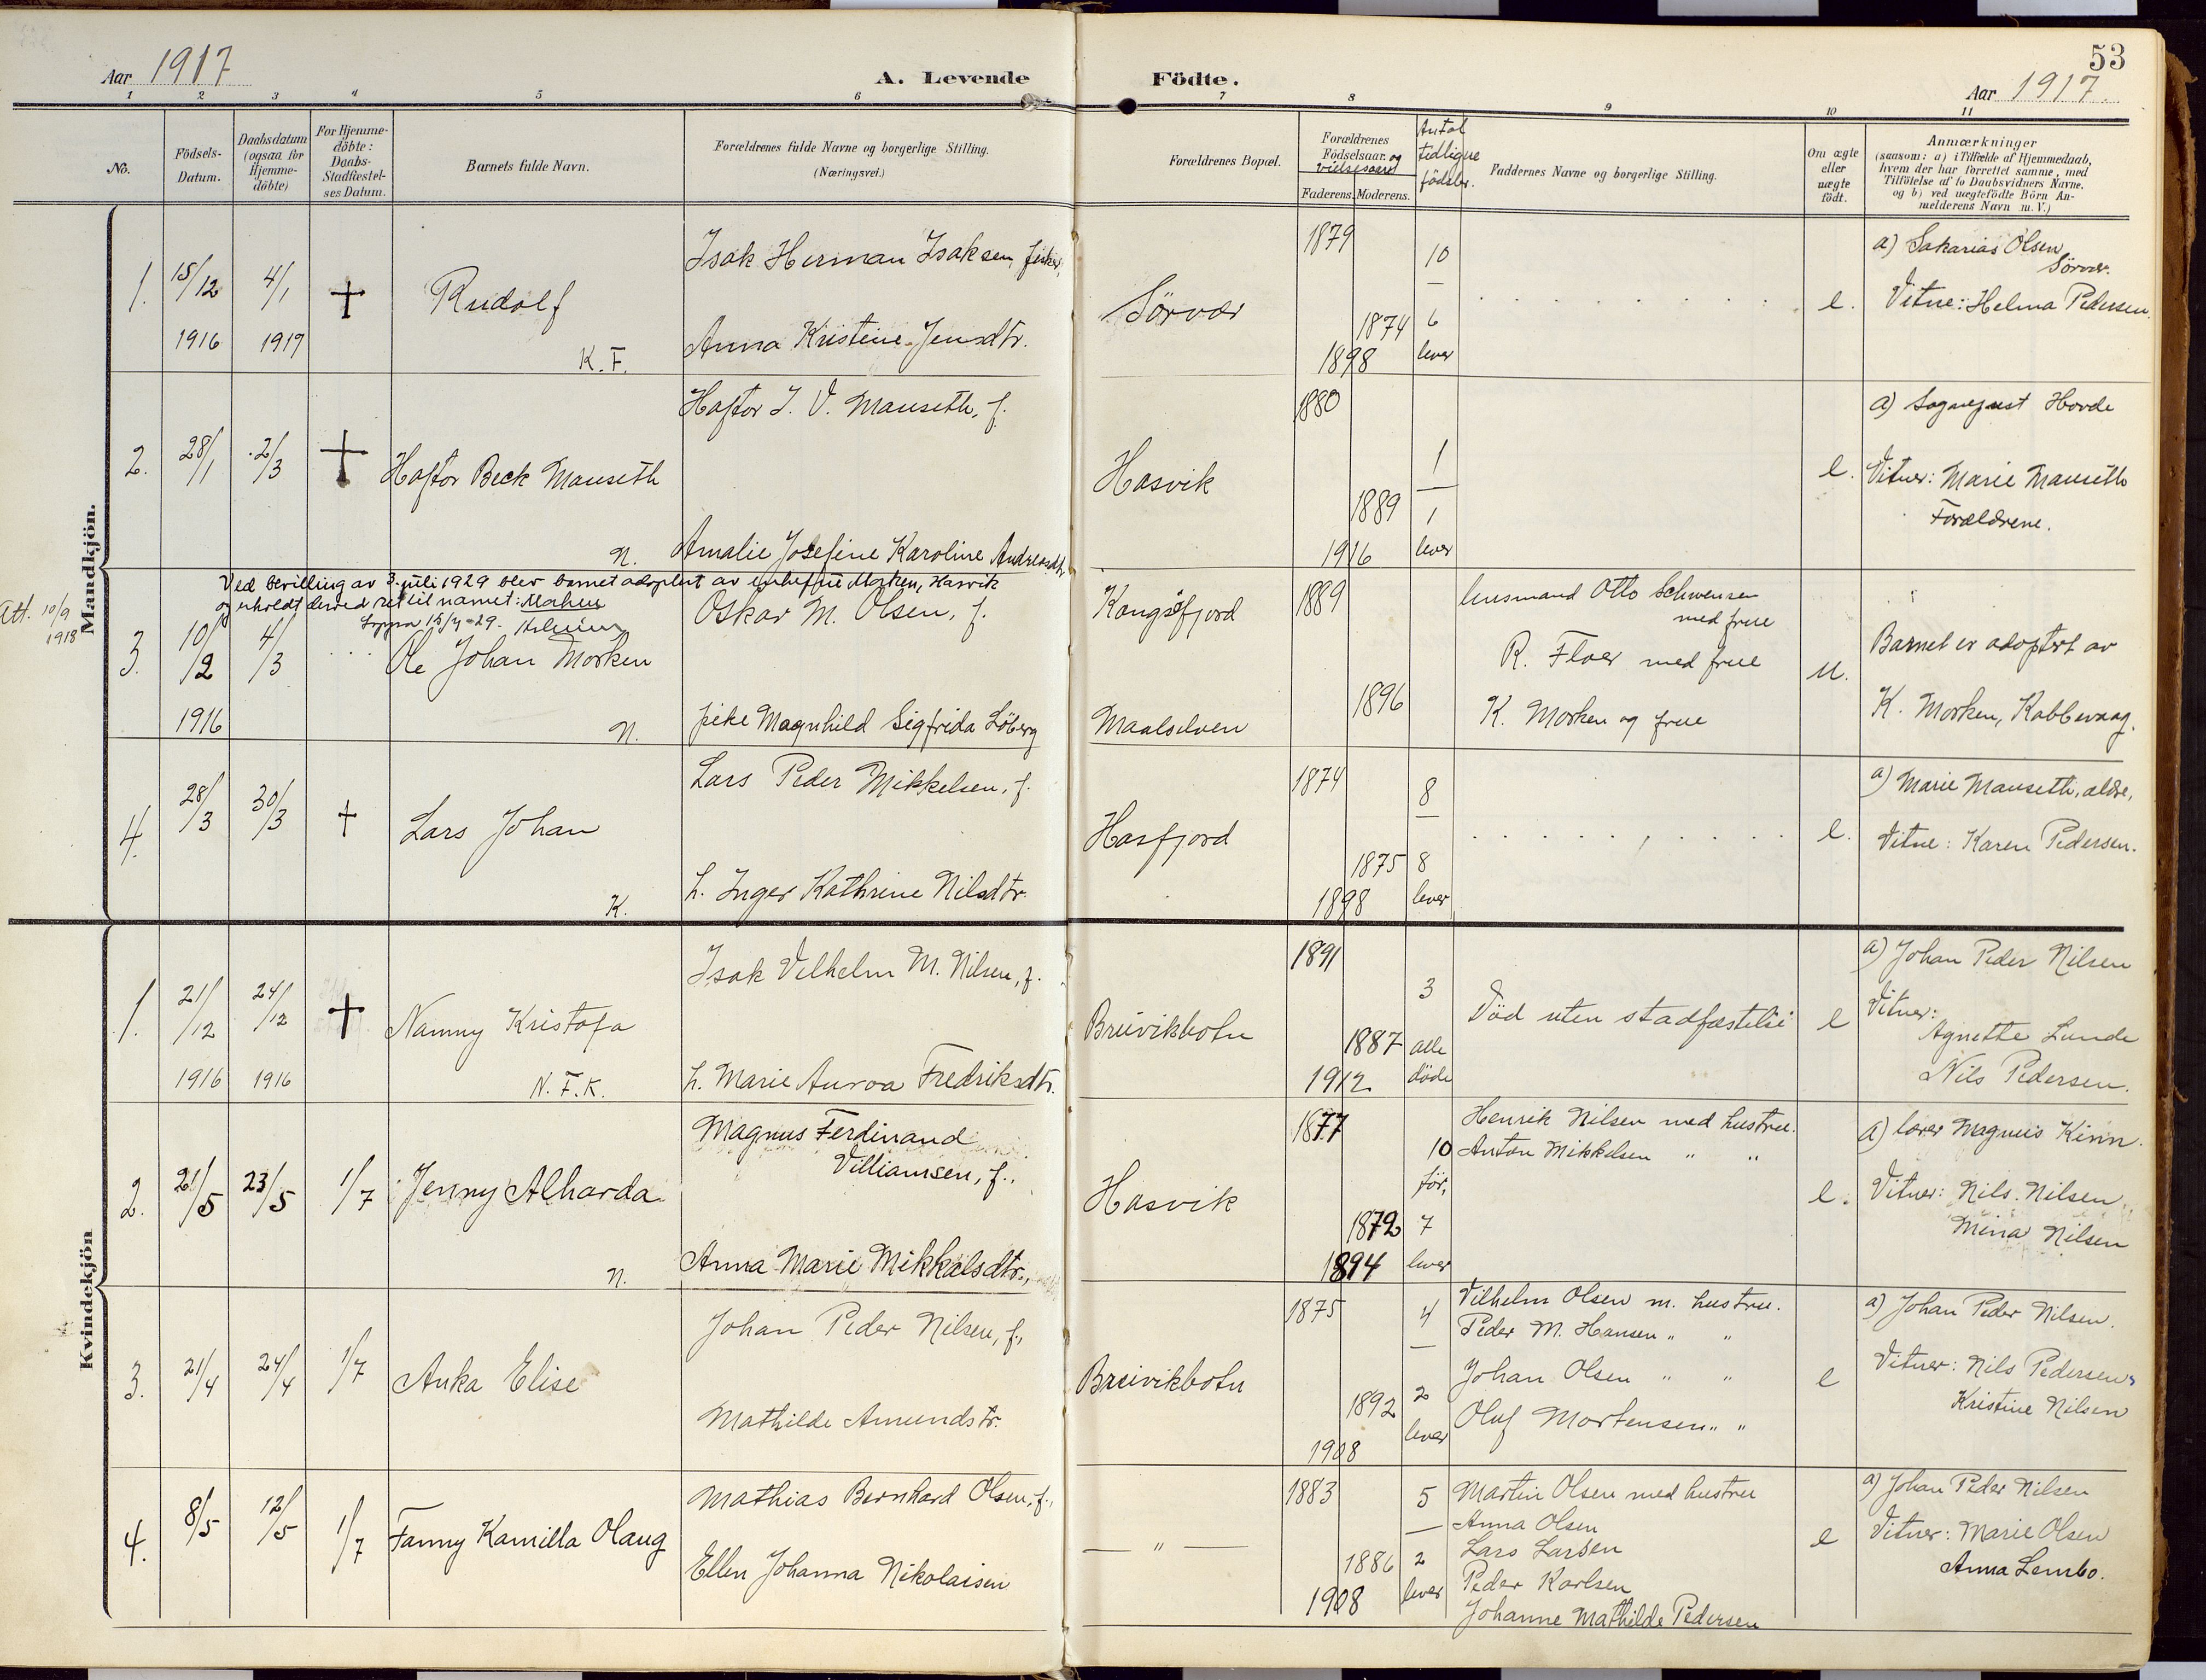 53
Aar 1917
A. Levende Födte.
Aar 1917.
1 2 3 4 5 6 7 8 9 10 11
No.
Födsels-
Datum.
Daabsdatum
(ogsaa for
Hjemme-
döbte)
For Hjemme-
döbte:
Daabs-
Stadfæstel-
ses Datum.
Barnets fulde Navn.
Forældrenes fulde Navne og borgerlige Stilling.
(Næringsvei.)
Forældrenes Bopæl.
Forældrenes
Födselsaar. og
vielsesaar
Faderens. Moderens.
Antal
tidligere
födsler.
Faddernes Navne og borgerlige Stilling.
Om ægte
eller
uægte
födt.
Anmærkninger
(saasom: a) i Tilfælde af Hjemmedaab,
hvem der har forrettet samme, med
Tilföielse af to Daabsvidners Navne,
og b) ved uægtefödte Börn An-
melderens Navn m. V.)
Mandkjön.
1.
15/12
1916
4/1
1917
†
Rudolf
K. F.
Isak Herman Isaksen, fisker,
Anna Kristine Jensdtr.
Sörvær
1879
1874
1898
10
—
6
lever
e.
a) Sakarias Olsen
Sörvær.
Vitne: Helma Pedersen.
2.
28/1
2/3
†
Haftor Beck Mauseth
N.
Haftor J. V. Mauseth, f.
Amalie Josefine Karoline Andreasdtr
Hasvik
1880
1889
1916
1
—
1
lever
e.
a) Sogneprest Hovde
Vitner: Marie Mauseth
Forældrene.
Ved bevilling av 3. juli 1929 blev barnet adoptert av enkefrue Morken, Hasvik
og erholdt derved ret til namet: Morken
Loppa 15/7-29.
Att. 10/9
1918
3.
10/2
1916
4/3
Ole Johan Morken
N.
Oskar M. Olsen, f.
pike Magnhild Sigfrida Löberg
Kongsfjord
Maalselven
1889
1896
husmand Otto Schwensen
med frue
R. Floer med frue
K. Morken og frue
u.
Barnet er adoptert av
K. Morken, Kobbevaag.
4.
28/3
30/3
†
Lars Johan
K.
Lars Peder Mikkelsen, f.
h. Inger Kathrine Nilsdtr.
Hasfjord
1874
1875
1898
8
—
8
lever
e.
a) Marie Mauseth, ældre,
Vitne: Karen Pedersen.
Kvindekjön
1.
21/12
1916
24/12
1916
†
Nanny Kristofa
N. F. K.
Isak Vilhelm M. Nilsen, f.
h. Marie Auroa Fredriksdtr.
Breivikbotn
1891
1887
1912
3
alle
döde
Död uten stadfæstelse
e
a) Johan Peder Nilsen
Vitner:
Agnette Lunde
Nils Pedersen.
2.
21/5
23/5
1/7
Jenny Alharda
N.
Magnus Ferdinand
Villiamsen, f.,
Anna Marie Mikkalsdtr.,
Hasvik
1877
1872
1894
10
för,
7
lever
Henrik Nilsen med hustru.
Anton Mikkelsen " "
e.
a) lærer Magnus Kinn.
Vitner: Nils Nilsen,
Mina Nilsen
3.
21/4
24/4
1/7
Anka Elise
Johan Peder Nilsen, f.,
Mathilde Amundstr.
Breivikbotn
1875
1892
1908
4
—
2
lever
Vilhelm Olsen m. hustru.
Peder M. Hansen " "
Johan Olsen " "
Oluf Mortensen " "
e
a) Johan Peder Nilsen.
Vitner: Nils Pedersen,
Kristine Nilsen
4.
8/5
12/5
1/7
Fanny Kamilla Olaug
Mathias Bernhard Olsen, f.,
Ellen Johanna Nikolaisen
— " —
1883
1886
1908
5
—
2
lever
Martin Olsen med hustru
Anna Olsen
Lars Larsen
Peder Karlsen
Johanne Mathilde Pedersen
e
a) Johan Peder Nilsen
Vitner: Marie Olsen
Anna Lembo.